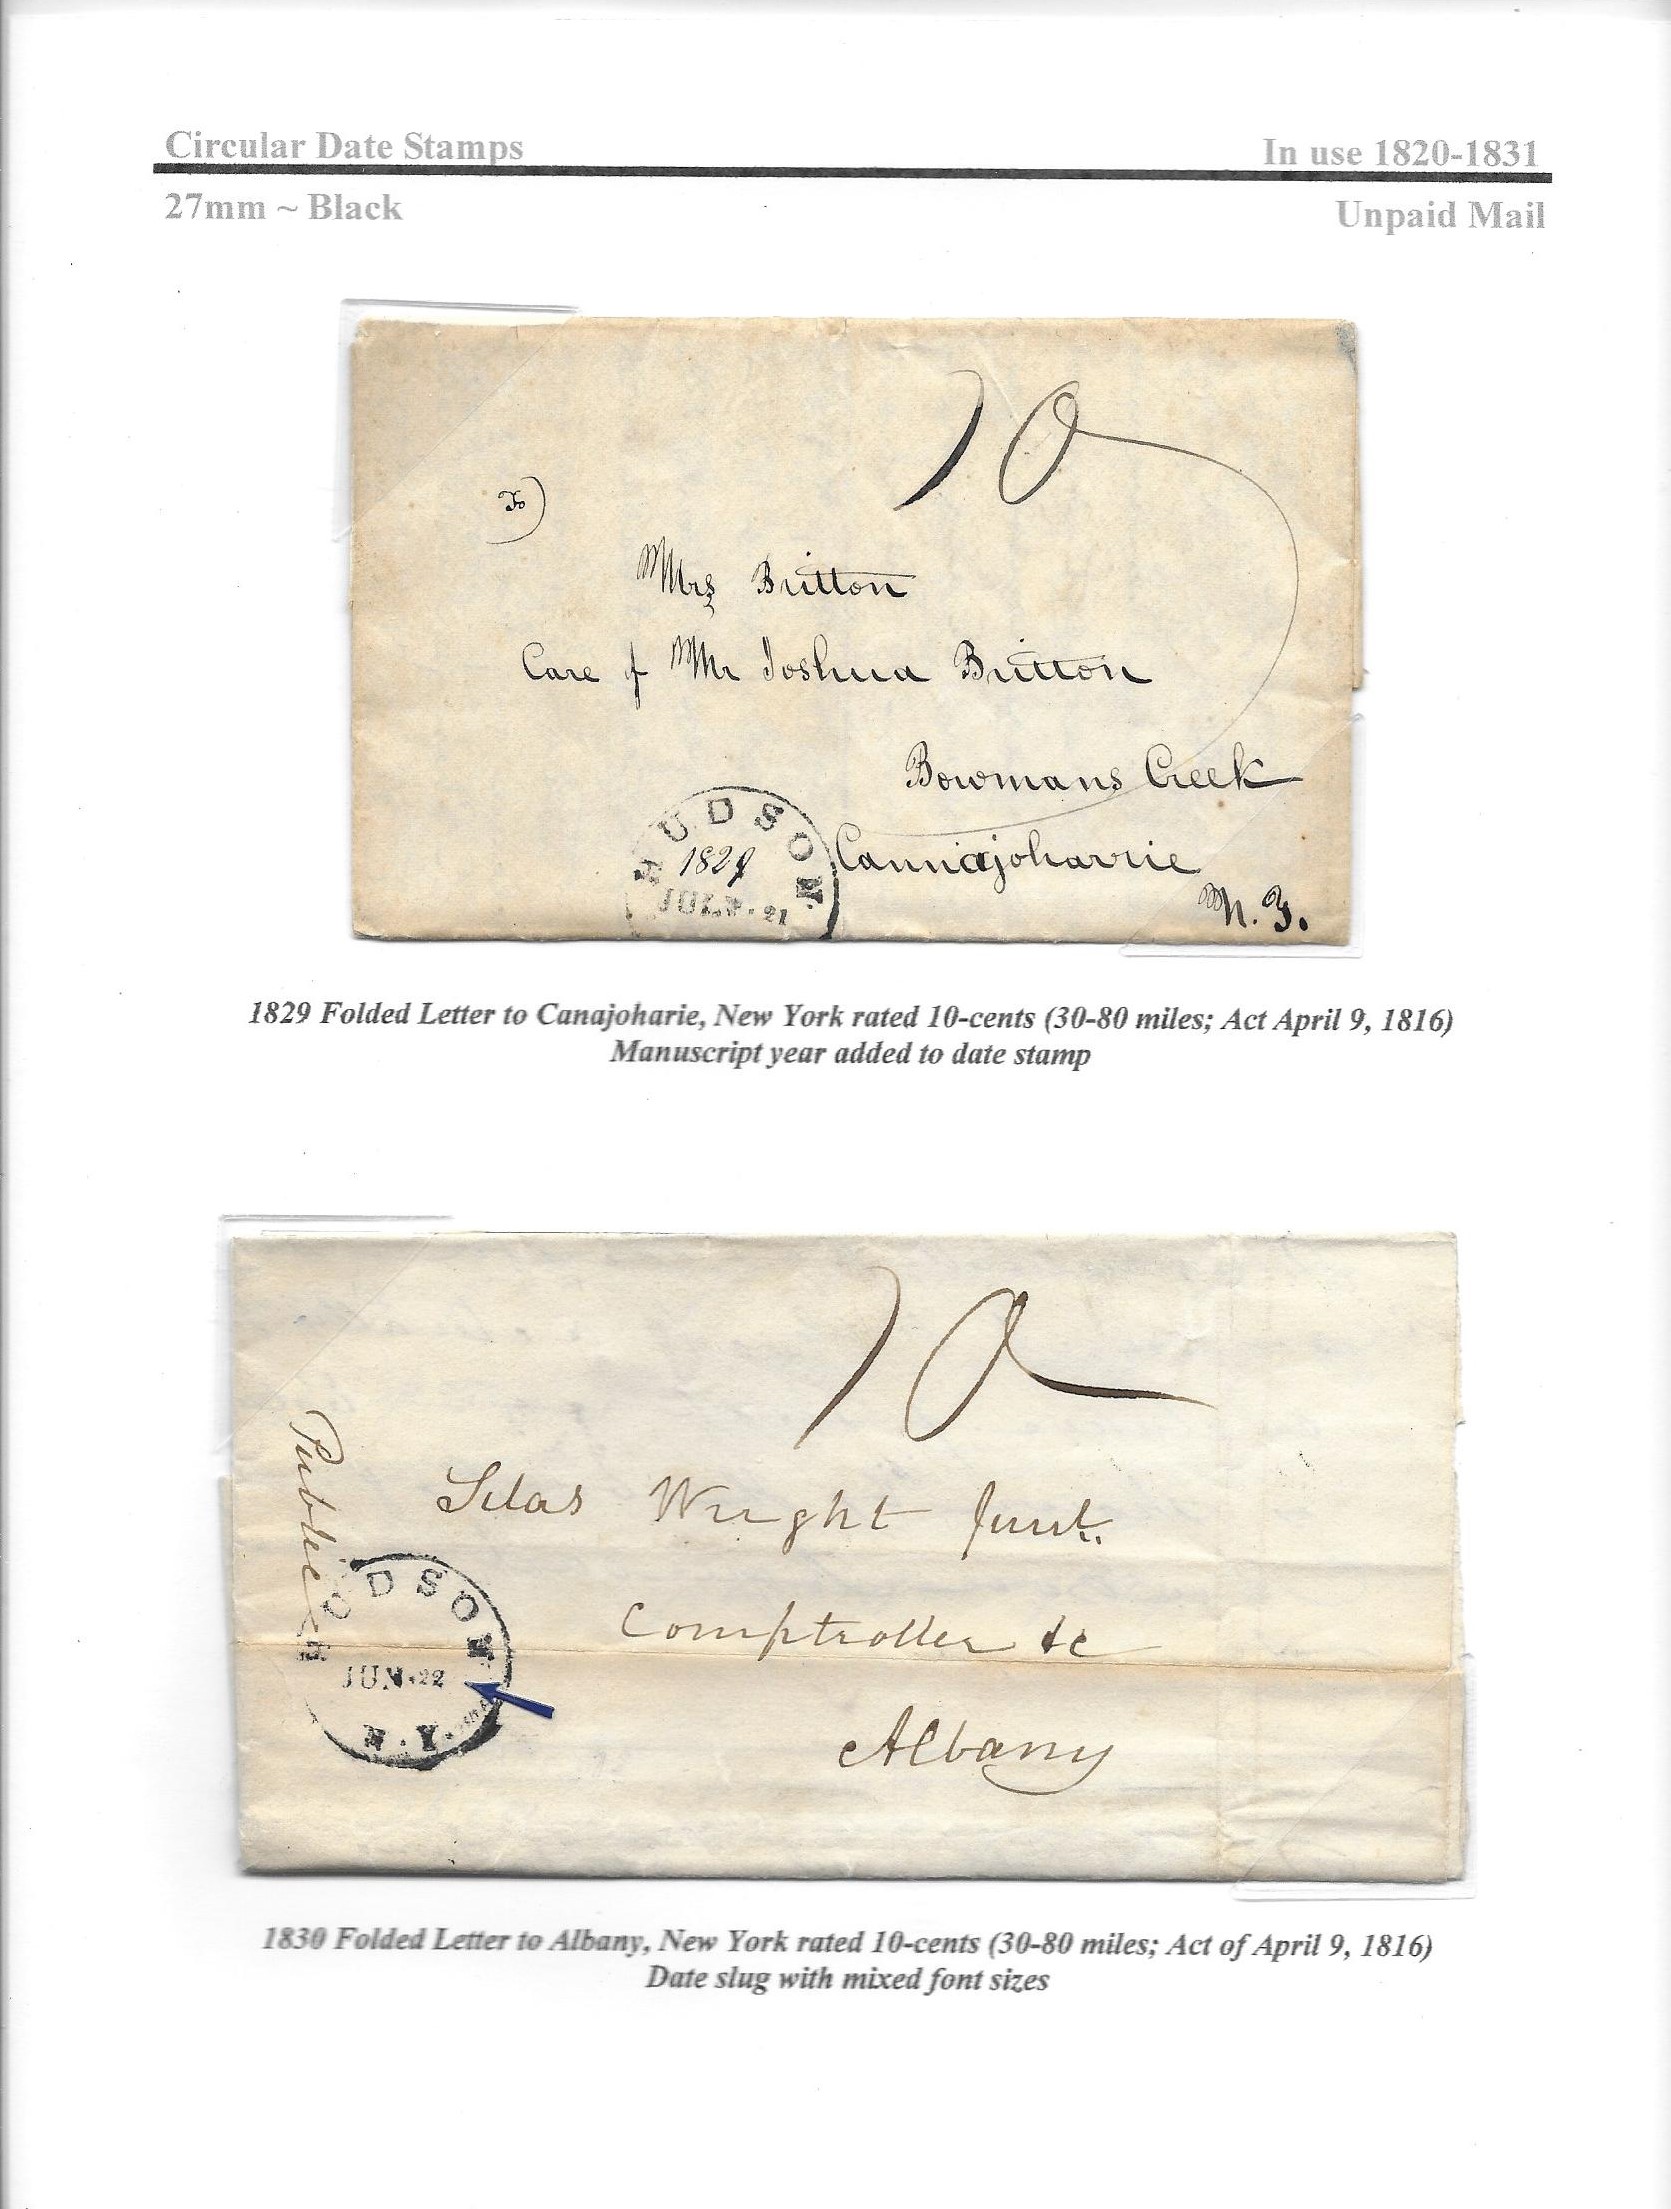 Circular Date Stamps
In use 1820-1831
27mm ~ Black
Unpaid Mail
10
To
Mrs Britton
Care of Mr Joshua Britton
Bowmans Creek
Cannajoharrie
N.Y.
HUDSON
1829
JULY.21
1829 Folded Letter to Canajoharie, New York rated 10-cents (30-80 miles; Act April 9, 1816)
Manuscript year added to date stamp
10
Public
Silas Wright Junr.
Comptroller &c
Albany
HUDSON
JUN.22
N.Y.
1830 Folded Letter to Albany, New York rated 10-cents (30-80 miles; Act of April 9, 1816)
Date slug with mixed font sizes